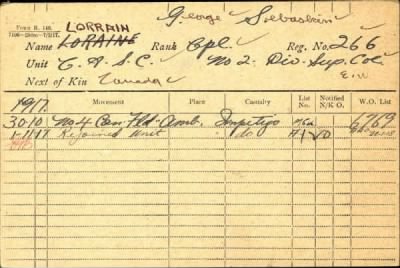 Form R. 140.
George Sebastian
LORRAIN
Name LORAINE Rank Cpl. Reg. No. 266
Unit C. A. S. C. No 2. Div. Sup. Col.
Next of Kin Canada
1917. Movement Place Casualty List No. Notified N/K O. W.O. List
30-10 No 4 Can Fld. Amb. Impetigo 6769
1-11-17 Rejoined Unit do